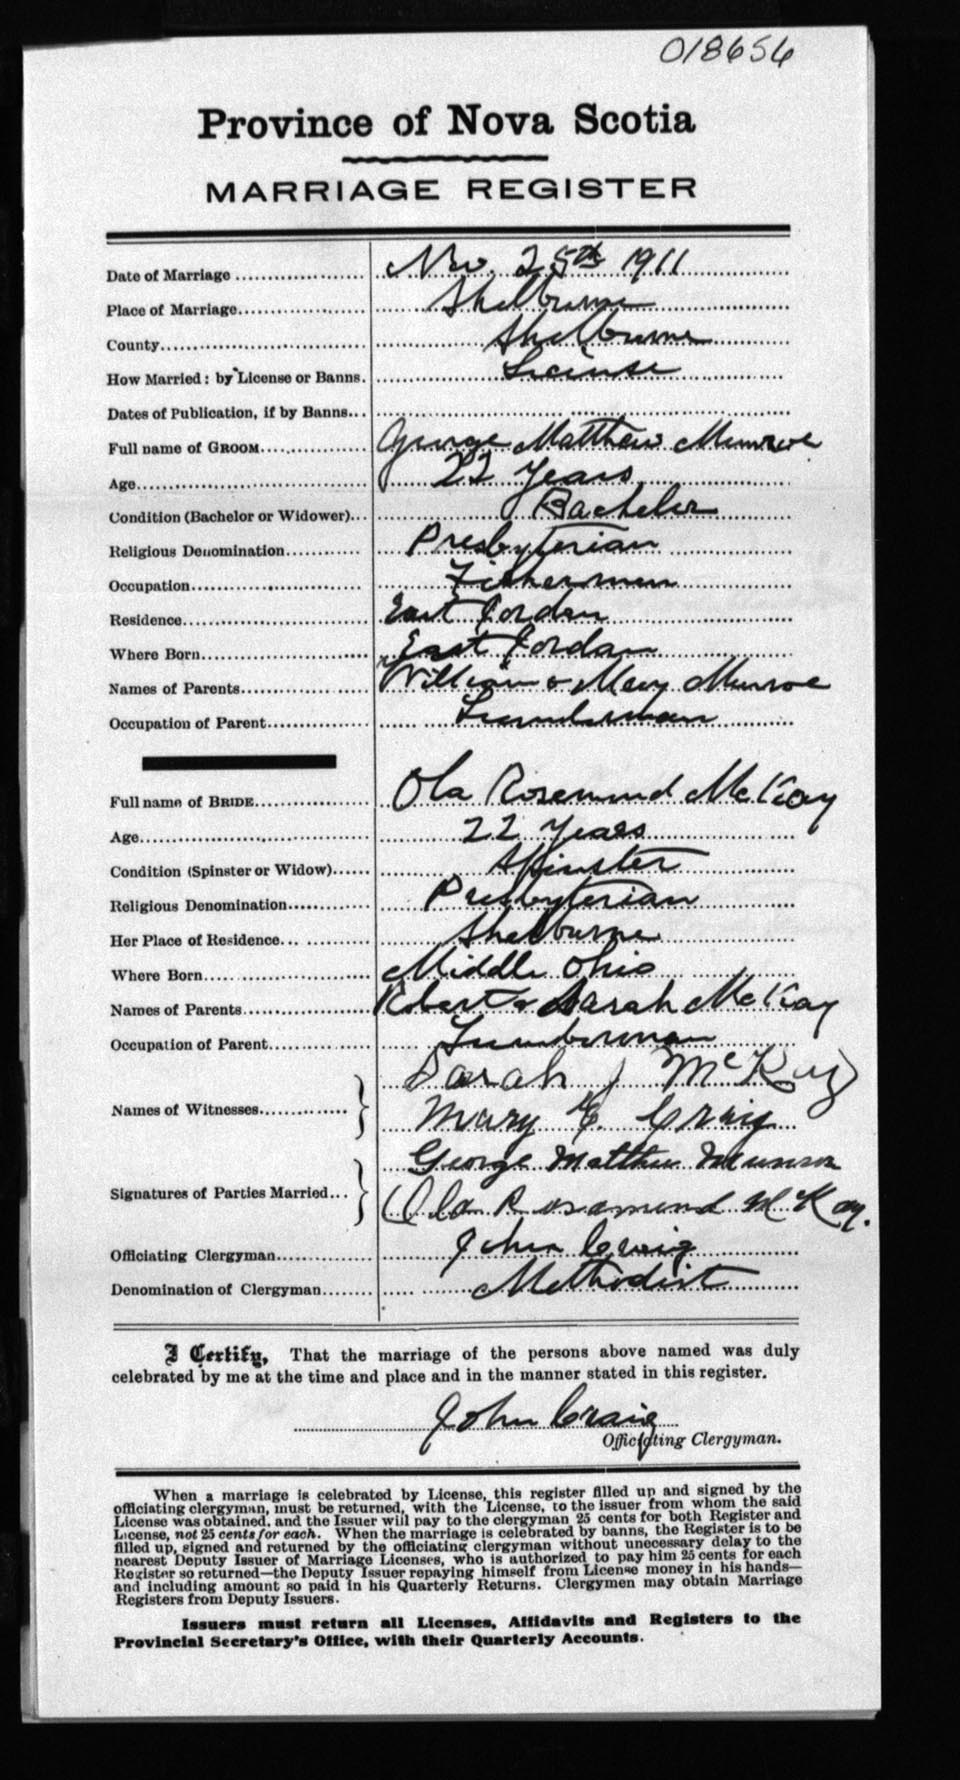 018656
Province of Nova Scotia
MARRIAGE REGISTER
Date of Marriage Nov. 25th 1911
Place of Marriage Shelburne
County Shelburne
How Married: by License or Banns. License
Dates of Publication, if by Banns
Full name of GROOM George Matthew Munroe
Age 22 Years
Condition (Bachelor or Widower) Bachelor
Religious Denomination Presbyterian
Occupation Fisherman
Residence East Jordan
Where Born East Jordan
Names of Parents William & Mary Munroe
Occupation of Parent Lumberman
Full name of BRIDE Ola Rosemund McKay
Age 22 Years
Condition (Spinster or Widow) Spinster
Religious Denomination Presbyterian
Her Place of Residence Shelburne
Where Born Middle Ohio
Names of Parents Robert & Sarah McKay
Occupation of Parent Lumberman
Names of Witnesses Sarah J McKay
Mary E. Craig
Signatures of Parties Married George Matthew Munroe
Ola Rosamund McKay.
Officiating Clergyman John Craig
Denomination of Clergyman Methodist
I Certify, That the marriage of the persons above named was duly
celebrated by me at the time and place and in the manner stated in this register.
John Craig
Officiating Clergyman.
When a marriage is celebrated by License, this register filled up and signed by the
officiating clergyman, must be returned, with the License, to the issuer from whom the said
License was obtained, and the Issuer will pay to the clergyman 25 cents for both Register and
License, not 25 cents for each. When the marriage is celebrated by banns, the Register is to be
filled up, signed and returned by the officiating clergyman without unecessary delay to the
nearest Deputy Issuer of Marriage Licenses, who is authorized to pay him 25 cents for each
Register so returned—the Deputy Issuer repaying himself from License money in his hands—
and including amount so paid in his Quarterly Returns. Clergymen may obtain Marriage
Registers from Deputy Issuers.
Issuers must return all Licenses, Affidavits and Registers to the
Provincial Secretary's Office, with their Quarterly Accounts.